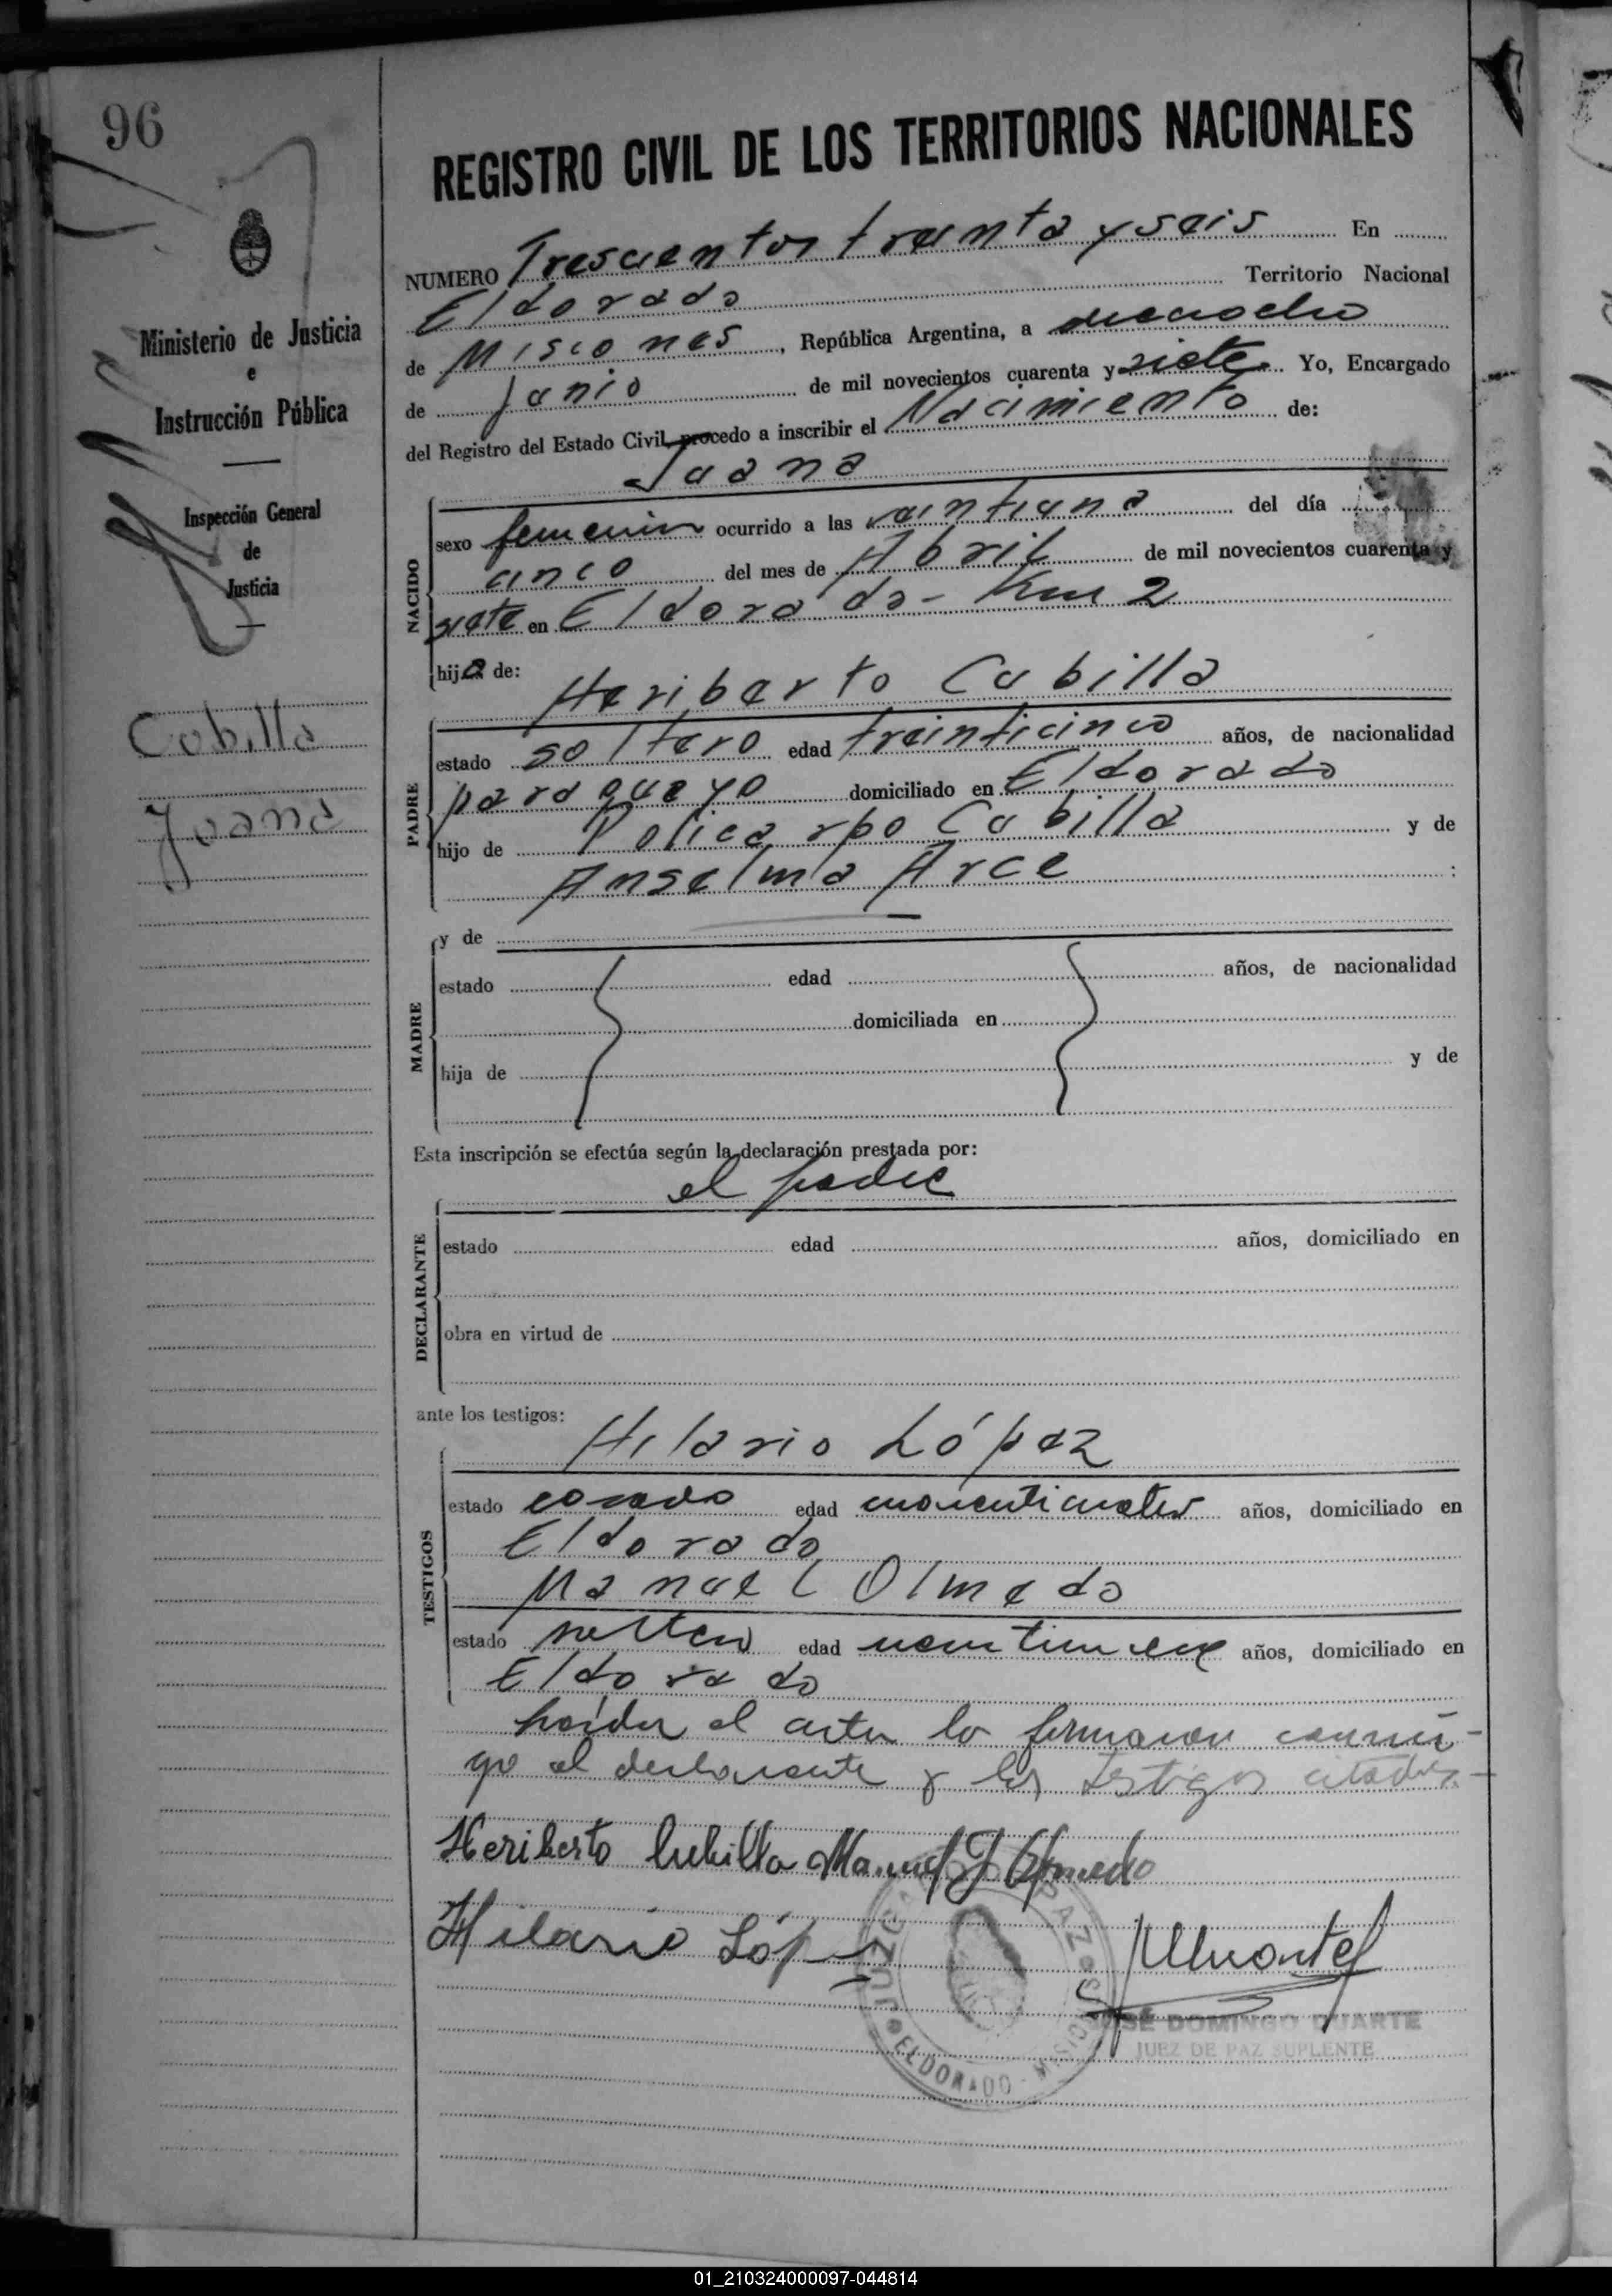 96
REGISTRO CIVIL DE LOS TERRITORIOS NACIONALES
NUMERO Trescientos treinta y seis En
Eldorado Territorio Nacional
de Misiones, República Argentina, a dieciocho
de Junio de mil novecientos cuarenta y siete Yo, Encargado
del Registro del Estado Civil, procedo a inscribir el Nacimiento de:
Juana
Ministerio de Justicia
e
Instrucción Pública
Inspección General
de
Justicia
Cubilla
Juana
NACIDO
sexo femenino ocurrido a las veintiuna del día
cinco del mes de Abril de mil novecientos cuarenta y
siete en Eldorado - Km 2
hija de:
Heriberto Cubilla
PADRE
estado soltero edad treinticinco años, de nacionalidad
paraguayo domiciliado en Eldorado
hijo de Policarpo Cubilla y de
Anselma Arce :
MADRE
y de
estado edad años, de nacionalidad
domiciliada en
hija de y de
Esta inscripción se efectúa según la declaración prestada por:
el padre
DECLARANTE
estado edad años, domiciliado en
obra en virtud de
ante los testigos:
Hilario López
TESTIGOS
estado casado edad cuarenticuatro años, domiciliado en
Eldorado
Manuel Olmedo
estado soltero edad años, domiciliado en
Eldorado
leída el acta la firmaron conmi-
go el declarante y los testigos citados.-
Heriberto Cubilla Manuel J Olmedo
Hilario López
JUZ PAZ
ELDORADO
SÉ DOMINGO DUARTE
JUEZ DE PAZ SUPLENTE
01_210324000097-044814